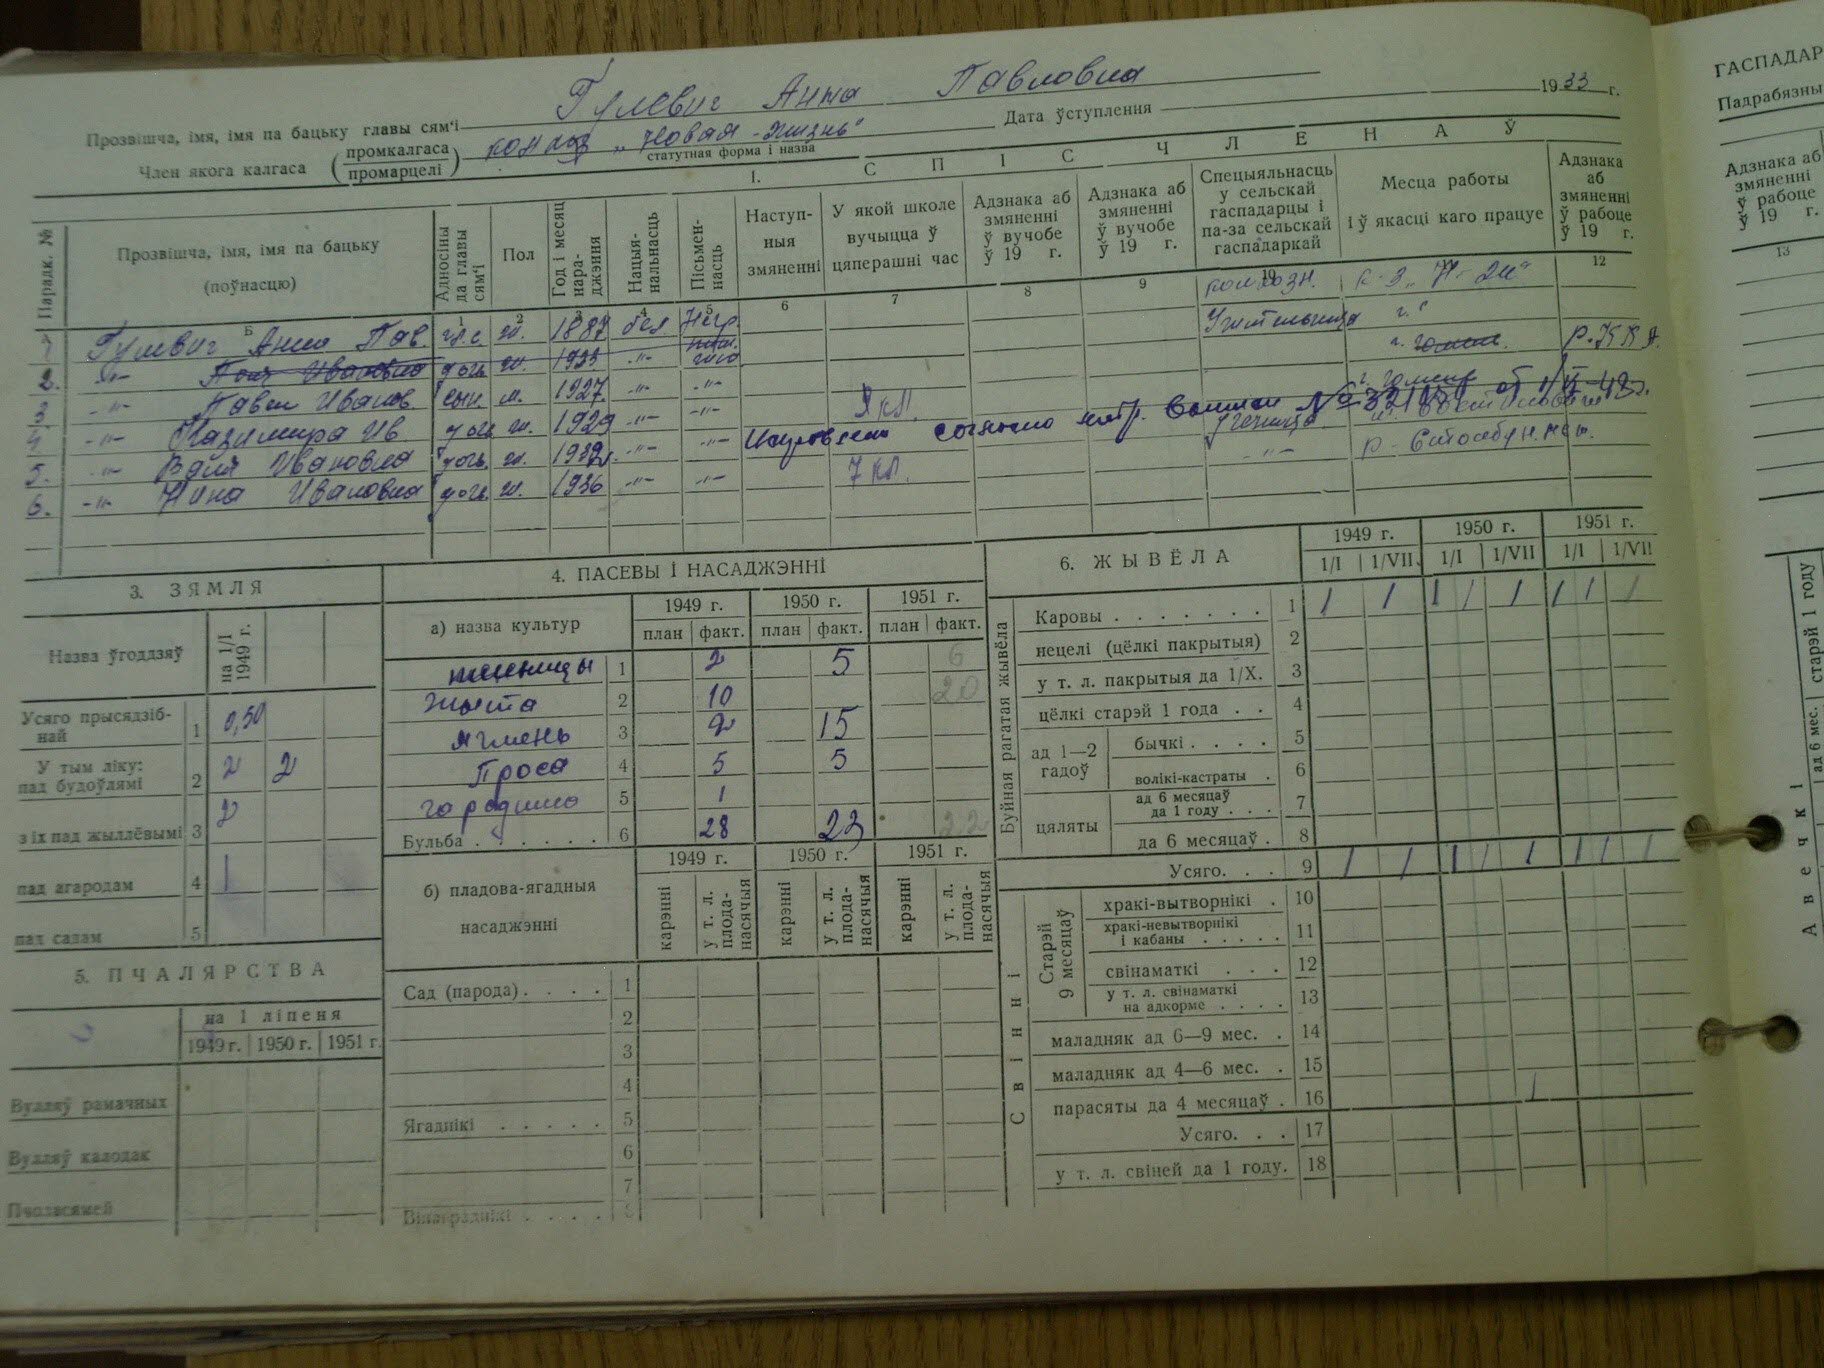 Прозвішча, імя, імя па бацьку главы сям'і Гулевич Анна Павловна
Член якога калгаса (промкалгаса промарцелі) колхоз „Новая-жизнь" Дата ўступлення 1933 г.
статутная форма і назва
І. СПІС ЧЛЕНАЎ
Парадк. № Прозвішча, імя, імя па бацьку (поўнасцю) Адносіны да главы сям'і Пол Год і месяц нараджэння Нацыянальнасць Пісьменнасць Наступныя змяненні У якой школе вучыцца ў цяперашні час Адзнака аб змяненні ў вучобе ў 19 г. Адзнака аб змяненні ў вучобе ў 19 г. Спецыяльнасць у сельскай гаспадарцы і па-за сельскай гаспадаркай Месца работы і ў якасці каго працуе Адзнака аб змяненні ў рабоце ў 19 г.
Б 1 2 3 4 5 6 7 8 9 10 12
1 Гулевич Анна Пав. гл.с. ж. 1887 бел Негр. колхозн.
2. -"- Ивановна дочь ж. 1923 -"- Учительница г.
3 -"- Павел Иванов. сын. м. 1927 -"- -"-
4. -"- Казимира Ив. дочь ж. 1929 -"- -"- 9 кл.
5. -"- Валя Ивановна дочь ж. 1932 -"- -"- согласно ученица
6. -"- Нина Ивановна дочь ж. 1936 -"- -"- 7 кл. -"-
3. ЗЯМЛЯ
Назва ўгоддзяў на 1/I 1949 г.
Усяго прысядзібнай 1 0,50
У тым ліку: пад будоўлямі 2 2 2
з іх пад жыллёвымі 3 2
пад агародам 4 1
пад садам 5
5. ПЧАЛЯРСТВА
на 1 ліпеня
1949 г. 1950 г. 1951 г.
Вулляў рамачных
Вулляў калодак
Пчоласямей
4. ПАСЕВЫ І НАСАДЖЭННІ
а) назва культур 1949 г. 1950 г. 1951 г.
план факт. план факт. план факт.
пшеницы 1 2 5 6
Жыта 2 10 20
Ячмень 3 2 15
Проса 4 5 5
5 1
Бульба 6 28 23 22
б) пладова-ягадныя насаджэнні 1949 г. 1950 г. 1951 г.
карэнні у т. л. плоданасячыя карэнні у т. л. плоданасячыя карэнні у т. л. плоданасячыя
Сад (парода) 1
2
3
4
Ягаднікі 5
6
7
Вінаграднікі 8
6. ЖЫВЁЛА 1949 г. 1950 г. 1951 г.
1/I 1/VII. 1/I 1/VII 1/I 1/VII
Буйная рагатая жывёла
Каровы 1 1 1 1 1 1 1
нецелі (цёлкі пакрытыя) 2
у т. л. пакрытыя да 1/X. 3
цёлкі старэй 1 года 4
ад 1—2 гадоў бычкі 5
волікі-кастраты 6
цяляты ад 6 месяцаў да 1 году 7
да 6 месяцаў 8
Усяго. 9 1 1 1 1 1 1
Свінні
Старэй 9 месяцаў
хракі-вытворнікі 10
хракі-невытворнікі і кабаны 11
свінаматкі 12
у т. л. свінаматкі на адкорме 13
маладняк ад 6—9 мес. 14
маладняк ад 4—6 мес. 15
парасяты да 4 месяцаў 16 1
Усяго. 17
у т. л. свіней да 1 году. 18
ГАСПАДАР
Падрабязны
Адзнака аб змяненні ў рабоце ў 19 г.
13
старэй 1 году
ад 6 мес.
Авечкі